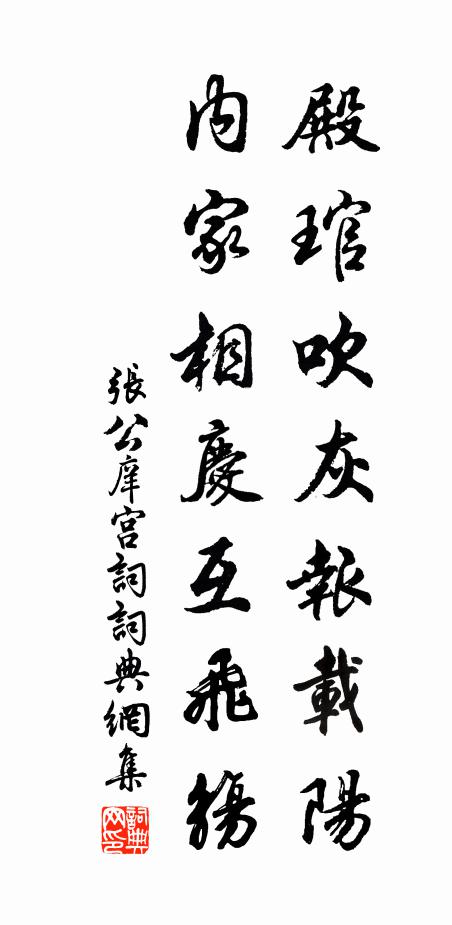 殿琯吹灰報載陽
內家相慶互飛觴
張公庠宮詞詞典網集
詞典網印